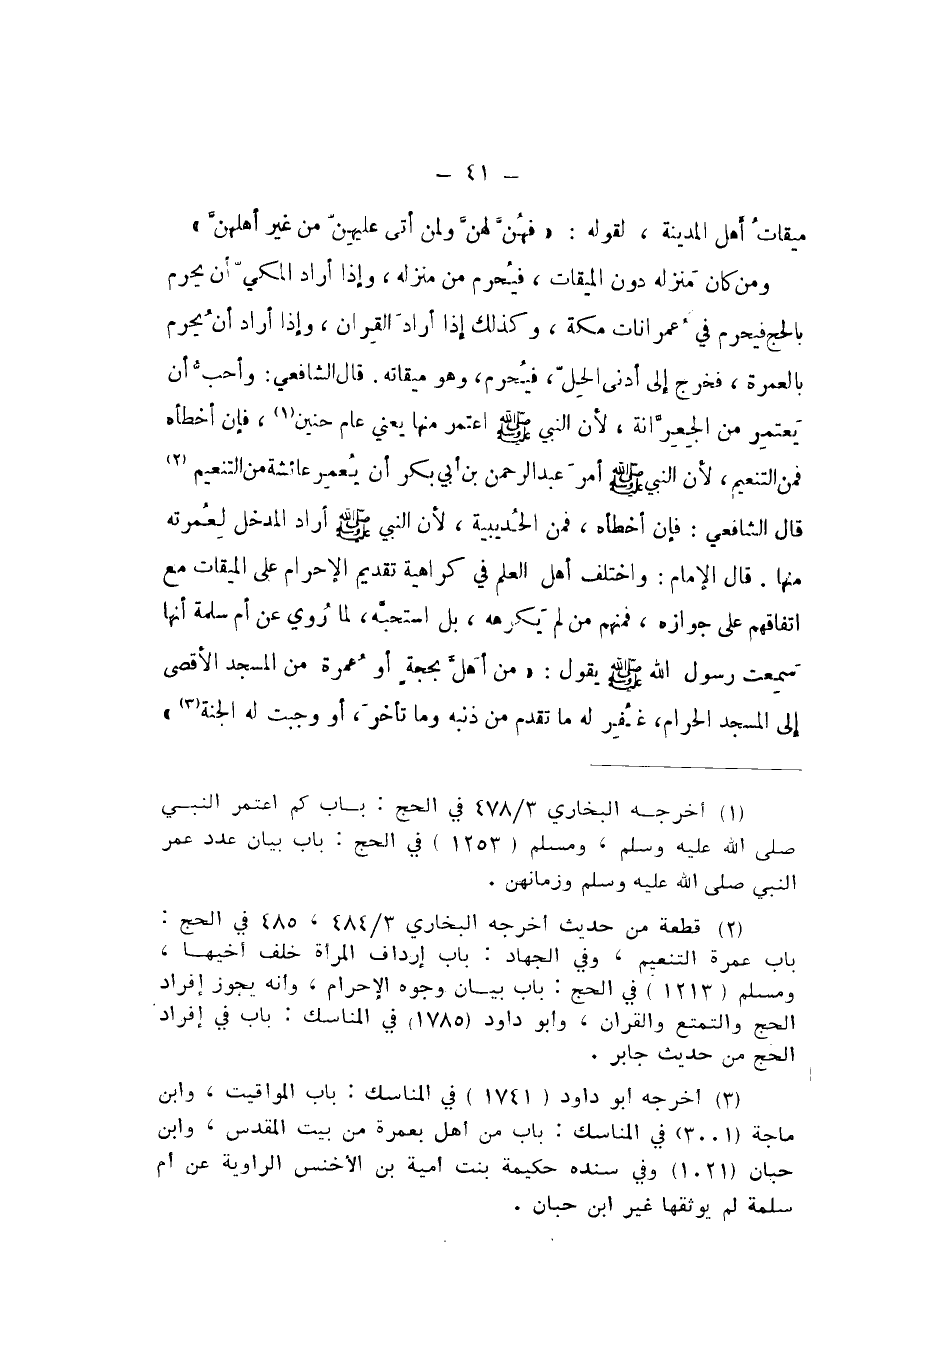 – ٤١ –
ميقاتُ أهل المدينة ، لقوله : « فهُنَّ لهنَّ ولمن أتى عليهنّ من غير أهلهنَّ »
ومن كان مَنزله دون الميقات ، فيُحرم من منزله ، وإذا أراد المكيّ أن يحرم
بالحج فيحرم في عُمرانات مكة ، وكذلك إذا أرادَ القِران ، وإذا أراد أن يُحرم
بالعمرة ، فخرج إلى أدنى الحِلّ ، فيُحرم ، وهو ميقاته . قال الشافعي : وأحبُّ أن
يَعتمِر من الجِعِرَّانة ، لأن النبي ﷺ اعتمر منها يعني عام حنين(١) ، فإن أخطأه
فمن التنعيم ، لأن النبي ﷺ أمرَ عبدالرحمن بن أبي بكر أن يُعمِر عائشة من التنعيم (٢)
قال الشافعي : فإن أخطأه ، فمن الحُديبية ، لأن النبي ﷺ أراد المدخل لِعُمرته
منها . قال الإمام : واختلف أهل العلم في كراهية تقديم الإحرام على الميقات مع
اتفاقهم على جوازه ، فمنهم من لم يَكرهه ، بل استحبَّه ، لما رُوي عن أم سلمة أنها
سَمِعت رسول الله ﷺ يقول : « من أهَلَّ بحجةٍ أو عُمرة من المسجد الأقصى
إلى المسجد الحرام ، غُفِر له ما تقدم من ذنبه وما تأخرَ ، أو وجبت له الجنة(٣) »
(١) أخرجـه البخاري ٤٧٨/٣ في الحج : بـاب كم اعتمر النبـي
صلى الله عليه وسلم ، ومسلم ( ١٢٥٣ ) في الحج : باب بيان عدد عمر
النبي صلى الله عليه وسلم وزمانهن .
(٢) قطعة من حديث أخرجه البخاري ٤٨٤/٣ ، ٤٨٥ في الحج :
باب عمرة التنعيم ، وفي الجهاد : باب إرداف المرأة خلف أخيهـا ،
ومسلم ( ١٢١٣ ) في الحج : باب بيـان وجوه الإحرام ، وأنه يجوز إفراد
الحج والتمتع والقران ، وأبو داود (١٧٨٥) في المناسك : باب في إفراد
الحج من حديث جابر .
(٣) أخرجه أبو داود ( ١٧٤١ ) في المناسك : باب المواقيت ، وابن
ماجة (٣٠٠١) في المناسك : باب من أهل بعمرة من بيت المقدس ، وابن
حبان (١٠٢١) وفي سنده حكيمة بنت أمية بن الأخنس الراوية عن أم
سلمة لم يوثقها غير ابن حبان .